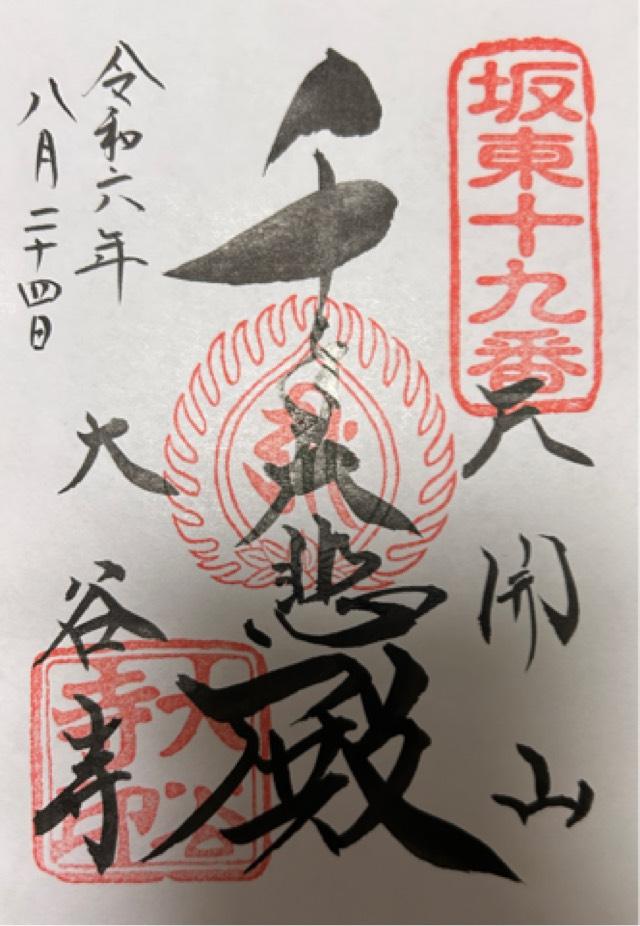 坂東十九番
天開山
千
大悲殿
令和六年
八月二十四日
大谷寺
大谷
寺印